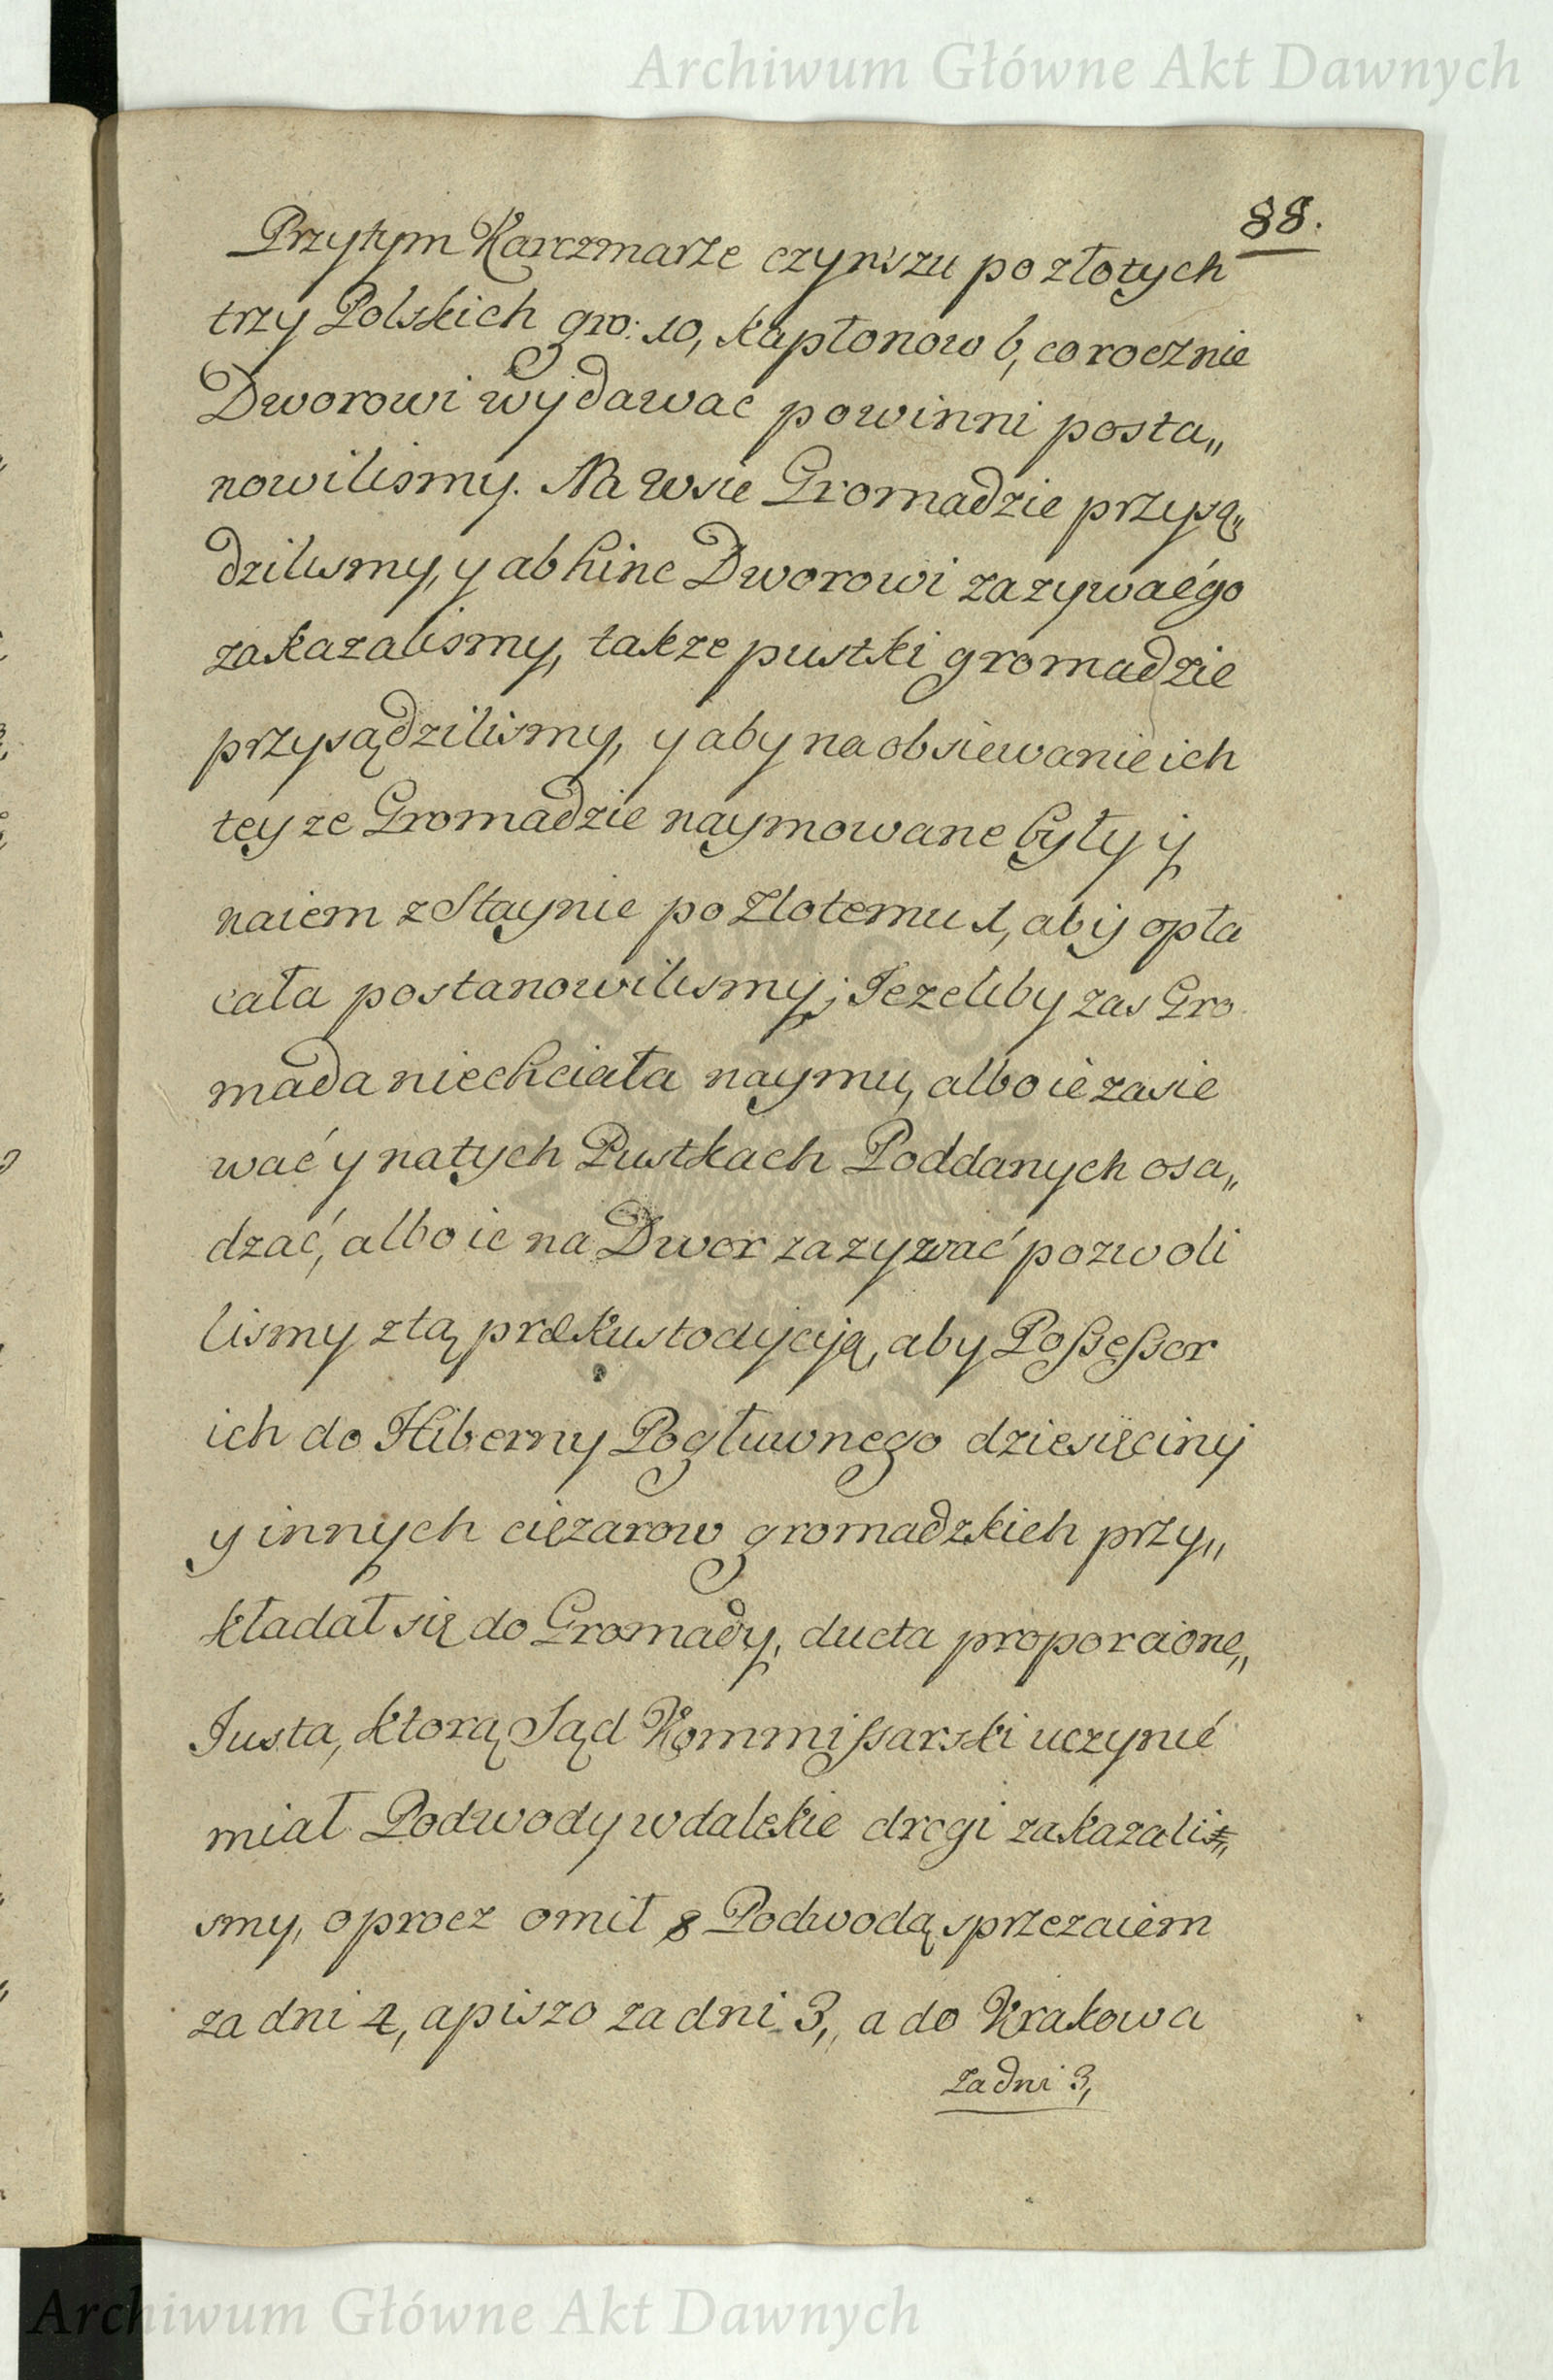 Archiwum Główne Akt Dawnych
88.
Przytym Karczmarze czynszu po złotych
trzy Polskich gro: 10, kapłonow 6, corocznie
Dworowi wydawać powinni posta„
nowilismy. Na wsie Gromadzie przysą„
dzilismy, y abhinc Dworowi zazywać go
zakazalismy, takze pustki gromadzie
przysądzilismy, y aby na obsiewanie ich
teyze Gromadzie naymowane były ÿ
naiem z Staynie po Zlotemu 1, abÿ opła
cała postanowilismy; Jezeliby zas Gro
mada niechciała naymu, albo ie zasie
wać y natych Pustkach Poddanych osa„
dzać, albo ie na Dwor zazywać pozwoli
lismy ztą prækustodycÿą, aby Possessor
ich do Hiberny Pogłuwnego dziesięcinÿ
y innych cięzarow gromadzkich przy„
kładał się do Gromady, ducta proporcione„
Justa, ktorą Sąd Kommissarski uczynić
miał Podwody wdalekie drogi zakazali„
smy, oprocz omil 8 Podwodą sprzezaiem
za dni 4, apiszo za dni 3, a do Krakowa
za dni 3,
Archiwum Główne Akt Dawnych